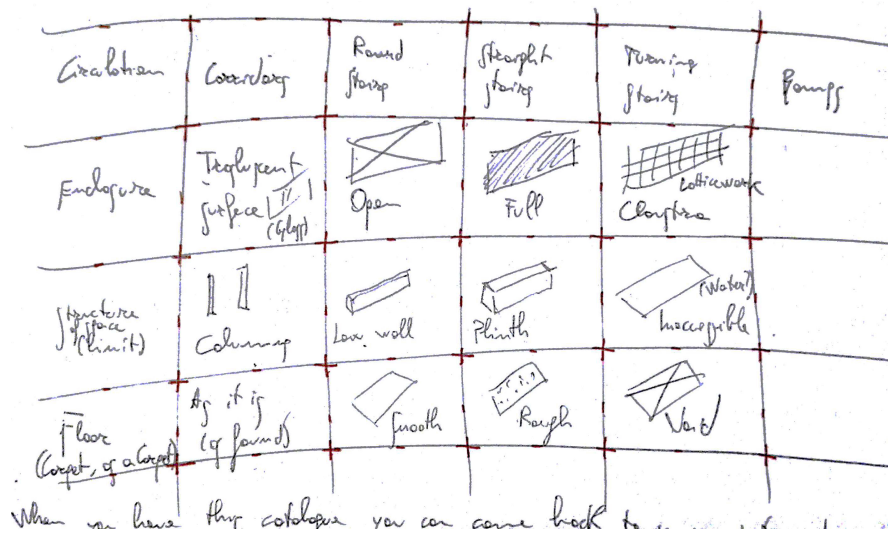 Circulation
Corridors
Round
stairs
Straight
stairs
Turning
stairs
Ramps
Enclosure
Traslucent
surface
(Glass)
Open
Full
Latticework
Claustra
Structure
of space
(limit)
Columns
Low wall
Plinth
(Water?)
Inaccessible
Floor
(Carpet, as a Carpet)
As it is
(as found)
Smooth
Rough
Void
When you have this catalogue you can come back to